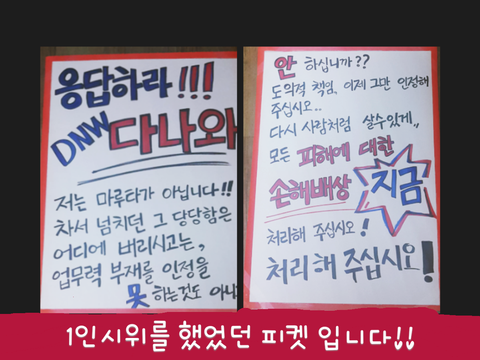 응답하라!!!
DNW 다나와
저는 마루타가 아닙니다!!
차서 넘치던 그 당당함은
어디에 버리시고는,,
업무력 부재를 인정을
못 하는것도 아니
안 하십니까??
도의적 책임, 이제 그만 인정해
주십시오..
다시 사람처럼 살수있게,,
모든 피해에 대한
손해배상 지금
처리해 주십시오!
처리해 주십시오!
1인시위를 했었던 피켓 입니다!!